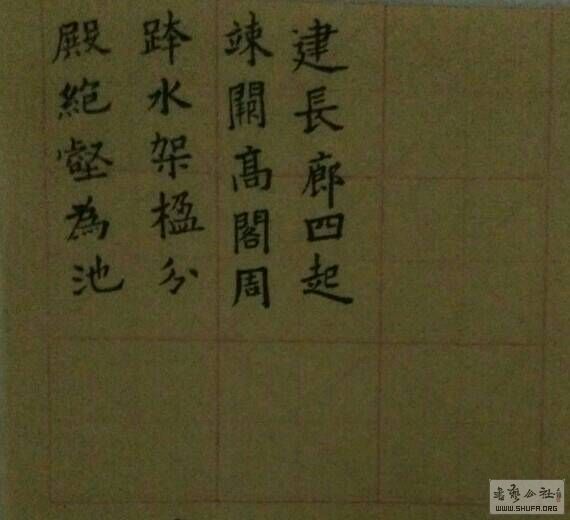 建長廊四起
竦闕髙閣周
跨水架楹分
殿絶壑為池
書藝公社
WWW.SHUFA.ORG